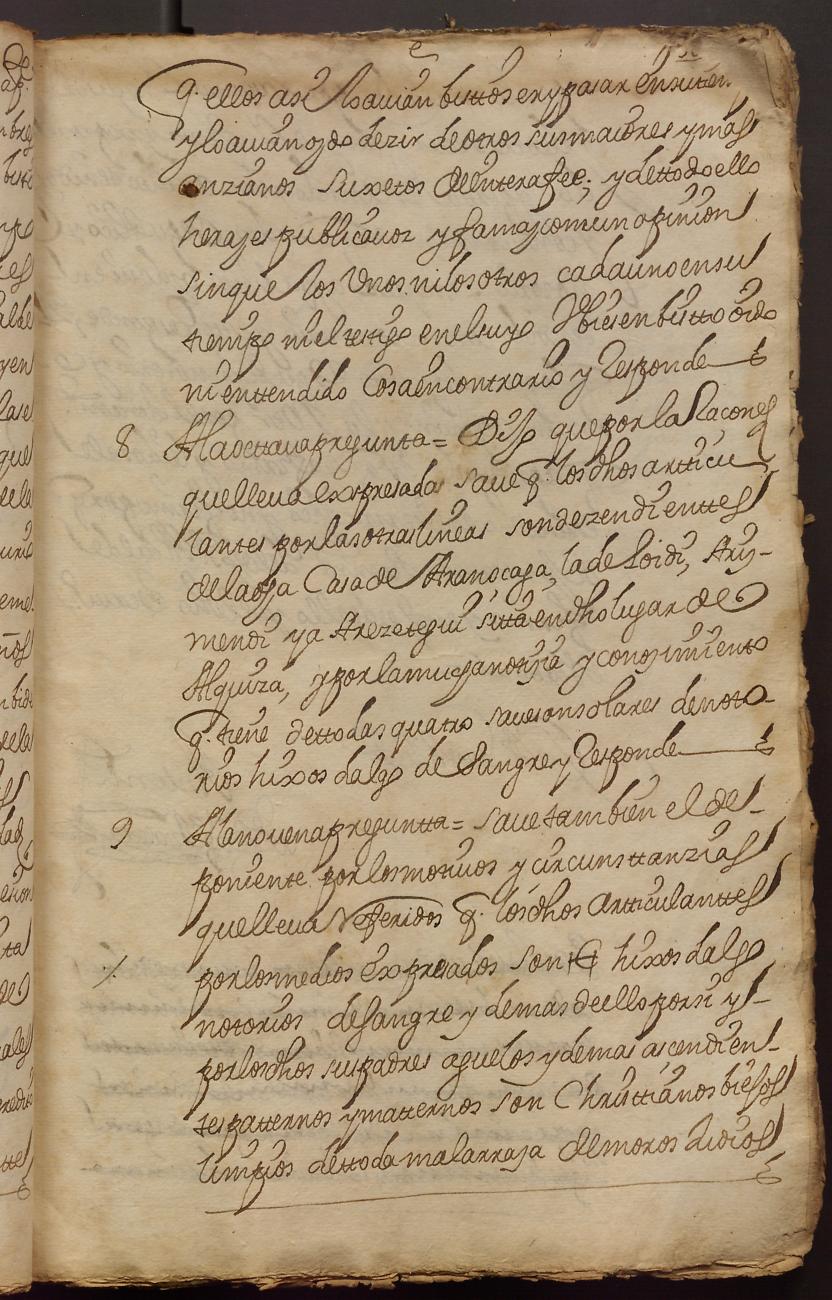 q. ellos asi lo auian bistto ser y pasar en su tiem
y lo auian oydo dezir de otros sus maiores y mas
anzianos suxetos de entera fee; y de ttodo ello
hera y es publica voz y fama y comun opinion
sin que los vnos ni los otros cada uno en su
tiempo ni el testigo en el suyo hubiesen bistto oido
ni enttendido cosa en contrario y Responde
8 A la octtaua pregunta = Dijo que por la Racones
que lleua expresadas saue q. los dhos articu
lantes por las otras lineas son dezendienttes
de la dha Casa de Aranocaga, la de Loidi, Aris-
mendi y a Arezetegui sitta en dho lugar de
Alquiza, y por la mucha notizia y conozimiento
q. tiene de ttodas quatro saue son solares de noto-
rios hixos dalgo de Sangre y Responde
9 A la nouena pregunta = saue tambien el de-
poniente por los motiuos y circunsttanzias
que lleua Referidos q. los dhos articulanttes
por los medios expresados son hixos dalgo
notorios de sangre y demas de ello por si y-
por los dhos sus padres aguelos y demas ascendien-
tes patternos y matternos son Christtianos biejos
limpios de ttoda mala rraza de moros Judios